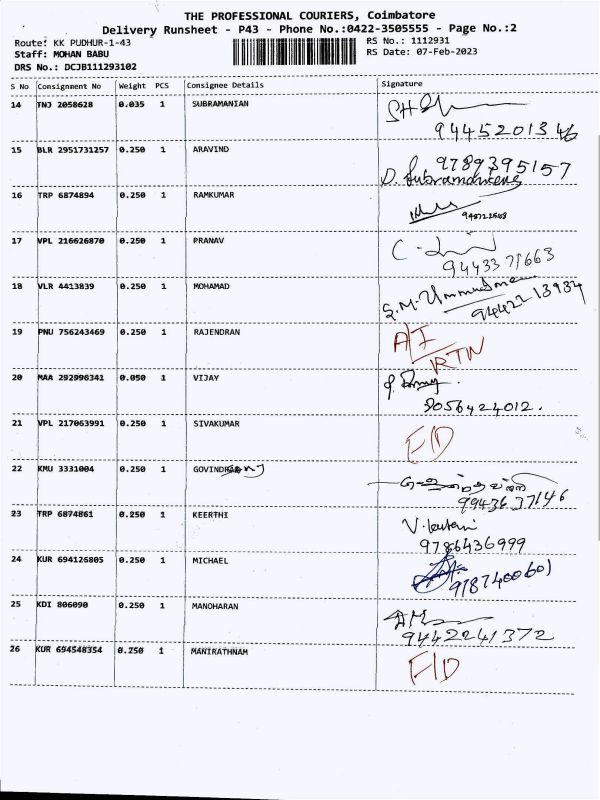 THE PROFESSIONAL COURIERS, Coimbatore
Delivery Runsheet - P43 - Phone No.:0422-3505555 - Page No.:2
Route: KK PUDHUR-1-43
RS No.: 1112931
Staff: MOHAN BABU
RS Date: 07-Feb-2023
DRS No.: DCJB111293102
S No Consignment No Weight PCS Consignee Details Signature
14 TNJ 2058628 0.035 1 SUBRAMANIAN
9445201346
15 BLR 2951731257 0.250 1 ARAVIND 9789395157
16 TRP 6874894 0.250 1 RAMKUMAR
17 VPL 216626870 0.250 1 PRANAV
9443371663
18 VLR 4413839 0.250 1 MOHAMAD
9442213934
19 PNU 756243469 0.250 1 RAJENDRAN A/I
RTN
20 MAA 292996341 0.050 1 VIJAY
9056424012.
21 VPL 217063991 0.250 1 SIVAKUMAR F/D
22 KMU 3331004 0.250 1
9943637146
23 TRP 6874861 0.250 1 KEERTHI
9786436999
24 KUR 694126805 0.250 1 MICHAEL
9187400601
25 KDI 806090 0.250 1 MANOHARAN
9442241372
26 KUR 694548354 0.250 1 MANIRATHNAM F/D